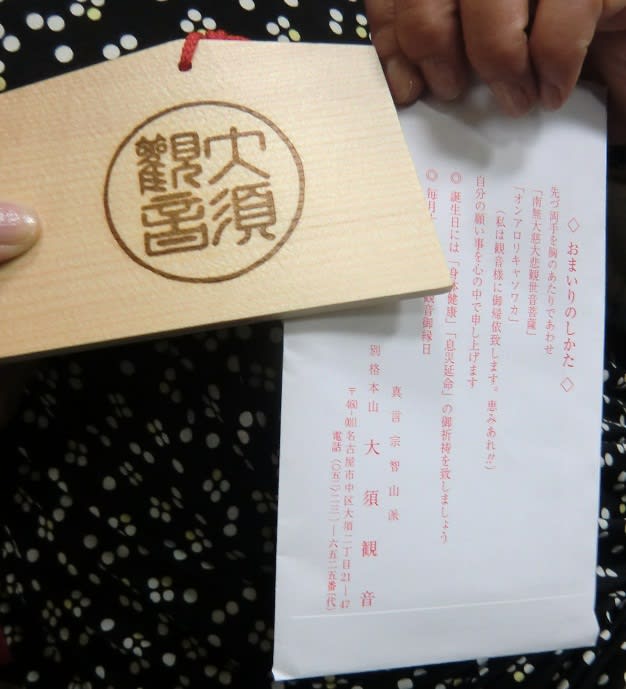 大須
觀音
◇ おまいりのしかた ◇
先づ両手を胸のあたりであわせ
「南無大慈大悲観世音菩薩」
「オンアロリキャソワカ」
(私は観音様に御帰依致します。恵みあれ!!)
自分の願い事を心の中で申し上げます
◎ 誕生日には「身体健康」「息災延命」の御祈祷を致しましょう
◎ 毎月 観音御縁日
真言宗智山派
別格本山 大須観音
〒460-0011 名古屋市中区大須二丁目21―47
電話(〇五二)二三一―六五二五番(代)